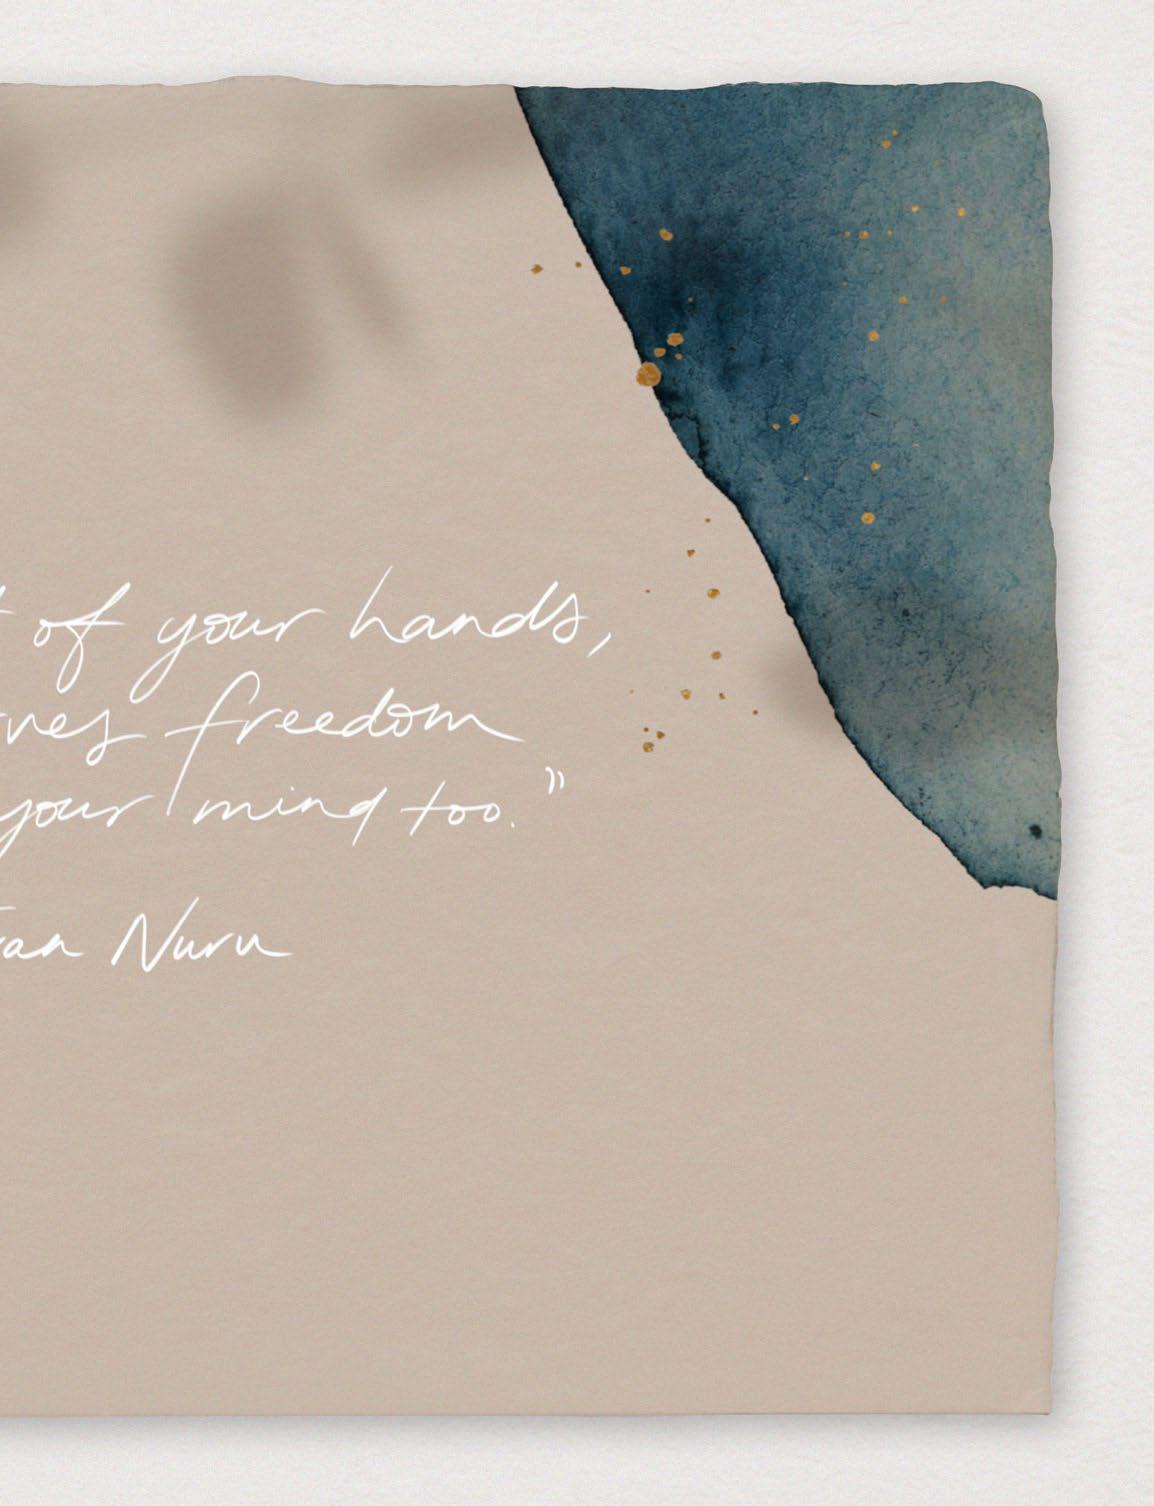 of your hands,
freedom
your mind too."
Nuru